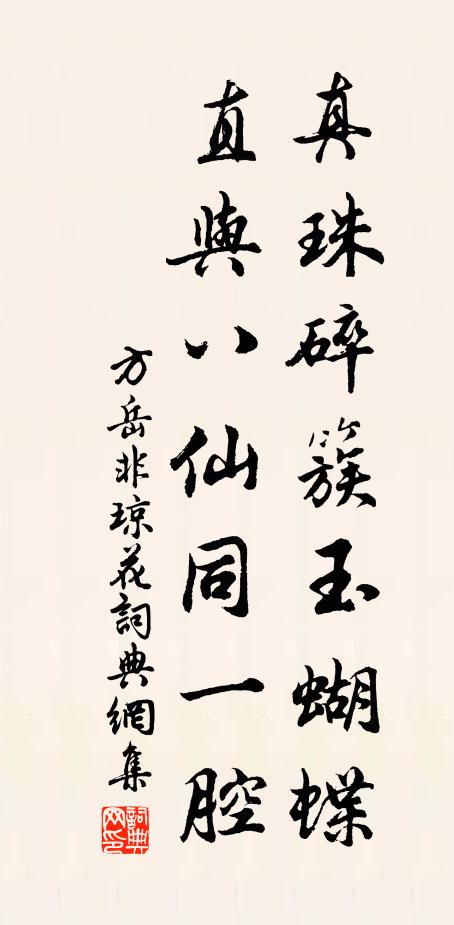 真珠碎簇玉蝴蝶
直與八仙同一腔
方岳非琼花詞典網集
詞典
網印